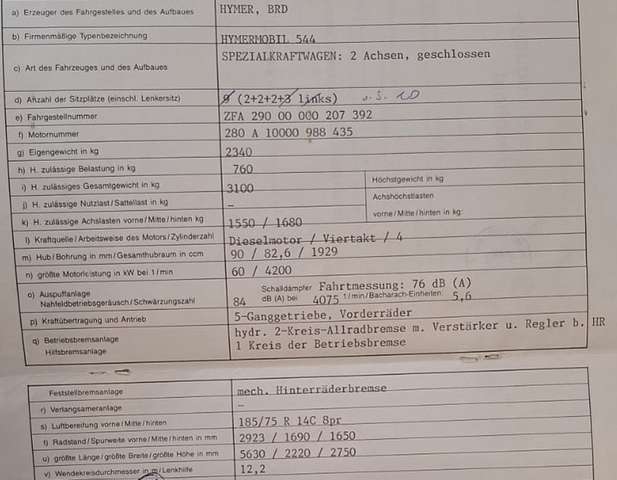 a) Erzeuger des Fahrgestelles und des Aufbaues HYMER, BRD
b) Firmenmäßige Typenbezeichnung HYMERMOBIL 544
c) Art des Fahrzeuges und des Aufbaues SPEZIALKRAFTWAGEN: 2 Achsen, geschlossen
d) Anzahl der Sitzplätze (einschl. Lenkersitz) 9 (2+2+2+3 links)
e) Fahrgestellnummer ZFA 290 00 000 207 392
f) Motornummer 280 A 10000 988 435
g) Eigengewicht in kg 2340
h) H. zulässige Belastung in kg 760
i) H. zulässiges Gesamtgewicht in kg 3100 Höchstgewicht in kg
j) H. zulässige Nutzlast/Sattellast in kg – Achshöchstlasten
k) H. zulässige Achslasten vorne/Mitte/hinten kg 1550 / 1680 vorne/Mitte/hinten in kg:
l) Kraftquelle/Arbeitsweise des Motors/Zylinderzahl Dieselmotor / Viertakt / 4
m) Hub/Bohrung in mm/Gesamthubraum in ccm 90 / 82,6 / 1929
n) größte Motorleistung in kW bei 1/min 60 / 4200
o) Auspuffanlage Schalldämpfer Fahrtmessung: 76 dB (A)
Nahfeldbetriebsgeräusch/Schwärzungszahl 84 dB (A) bei 4075 1/min/Bacharach-Einheiten: 5,6
p) Kraftübertragung und Antrieb 5-Ganggetriebe, Vorderräder
q) Betriebsbremsanlage hydr. 2-Kreis-Allradbremse m. Verstärker u. Regler b. HR
Hilfsbremsanlage 1 Kreis der Betriebsbremse
Feststellbremsanlage mech. Hinterräderbremse
r) Verlangsameranlage –
s) Luftbereifung vorne/Mitte/hinten 185/75 R 14C 8pr
t) Radstand/Spurweite vorne/Mitte/hinten in mm 2923 / 1690 / 1650
u) größte Länge/größte Breite/größte Höhe in mm 5630 / 2220 / 2750
v) Wendekreisdurchmesser in m/Lenkhilfe 12,2